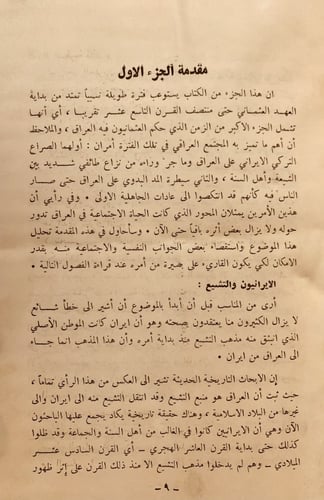 مقدمة الجزء الاول
ان هذا الجزء من الكتاب يستوعب فترة طويلة نسبياً تمتد من بداية
العهد العثماني حتى منتصف القرن التاسع عشر تقريبا ، أي أنها
تشمل الجزء الاكبر من الزمن الذي حكم العثمانيون فيه العراق ، والملاحظ
أن أهم ما تميز به المجتمع العراقي في تلك الفترة أمران : أولهما الصراع
التركي الايراني على العراق وما جر وراءه من نزاع طائفي شديد بين
الشيعة وأهل السنة ، والثاني سيطرة المد البدوي على العراق حتى صار
الناس فيه كأنهم قد انتكسوا الى عادات الجاهلية الاولى ٠ وفي رأيي أن
هذين الأمرين يمثلان المحور الذي كانت الحياة الاجتماعية في العراق تدور
حوله ولا يزال بعض أثره باقياً حتى الآن ٠ وسأحاول في هذه المقدمة تحليل
هذا الموضوع واستقصاء بعض الجوانب النفسية والاجتماعية منه بقدر
الامكان لكي يكون القاريء على بصيرة من أمره عند قراءة الفصول التالية ٠
الايرانيون والتشيع :
أرى من المناسب قبل أن أبدأ بالموضوع أن أشير الى خطأ شائع
لا يزال الكثيرون منا يعتقدون بصحته وهو أن ايران كانت الموطن الأصلي
الذي انبثق منه مذهب التشيع منذ بداية أمره وأن هذا المذهب انما جاء
الى العراق من ايران ٠
إن الابحاث التاريخية الحديثة تشير الى العكس من هذا الرأي تماماً ،
حيث ثبت أن العراق هو منبع التشيع وقد انتقل التشيع منه الى ايران والى
غيرها من البلاد الاسلامية ، وهناك حقيقة تاريخية يكاد يجمع عليها الباحثون
الآن وهي أن الايرانيين كانوا في الغالب من أهل السنة والجماعة وقد ظلوا
كذلك حتى بداية القرن العاشر الهجري – أي القرن السادس عشر
الميلادي – وهم لم يدخلوا مذهب التشيع الا منذ ذلك القرن على إثر ظهور
– ٩ –